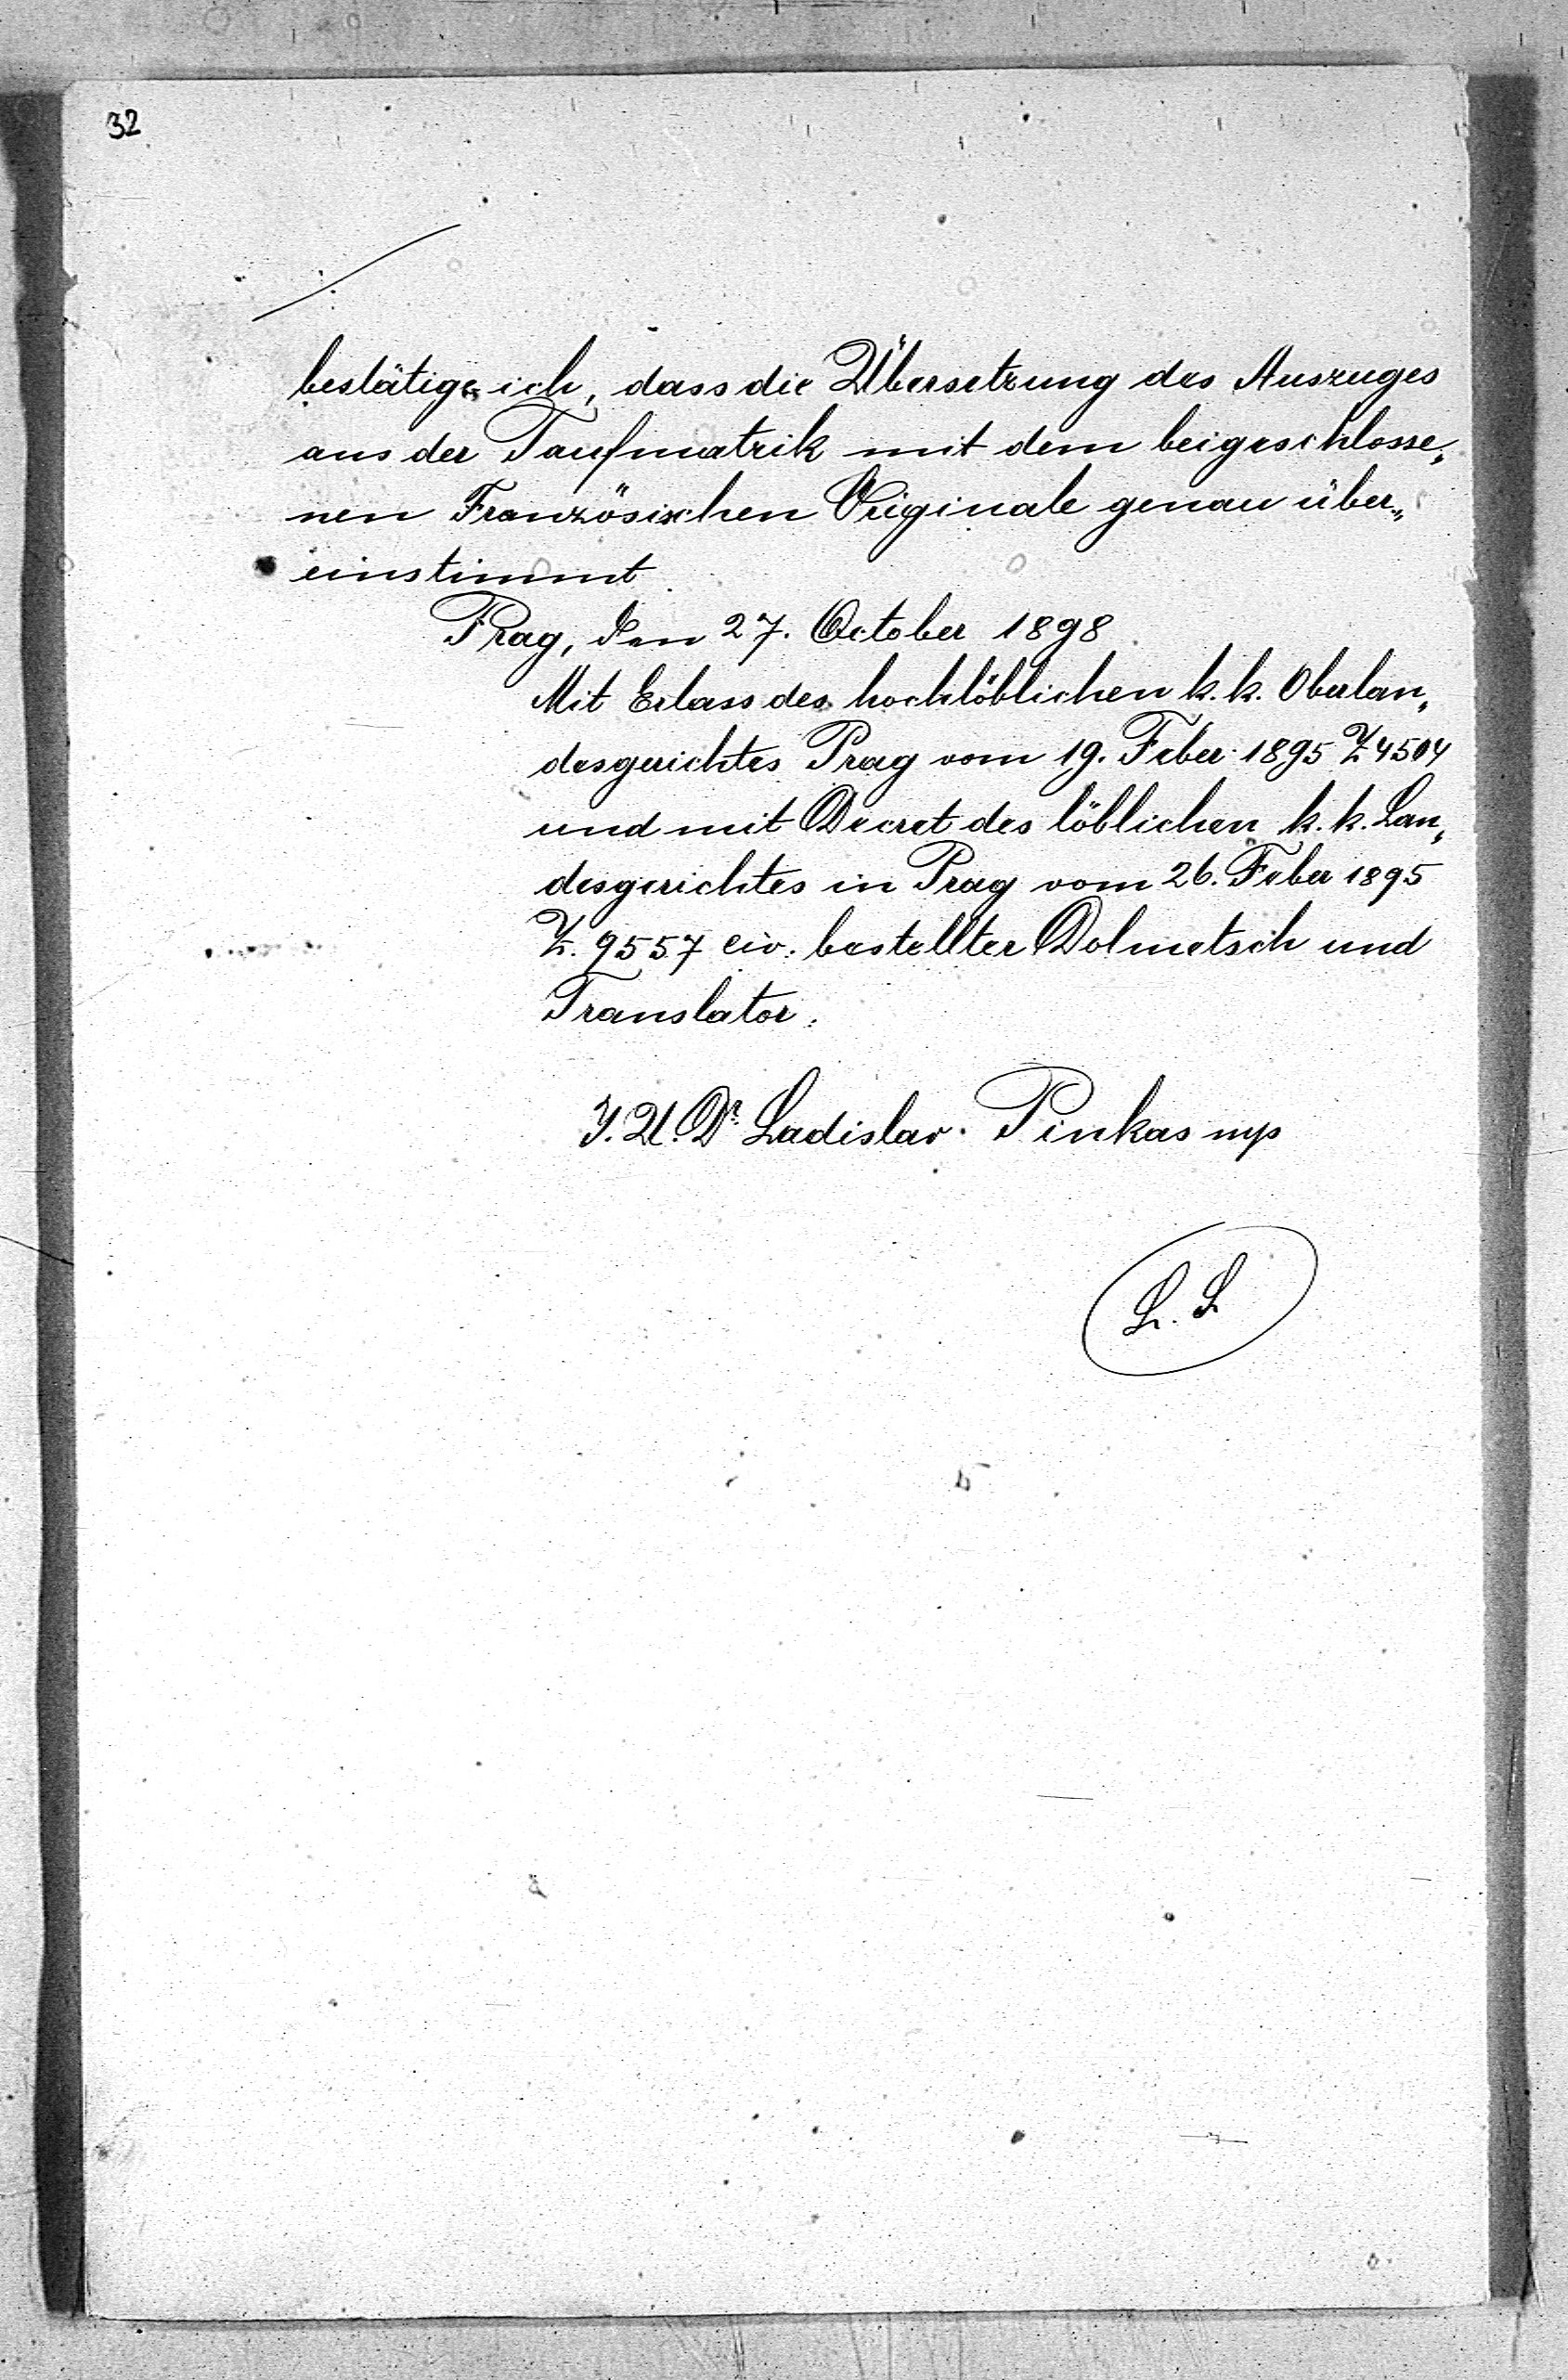 32
bestätige ich, dass die Übersetzung des Auszuges
aus der Taufmatrik mit dem beigeschlosse„
nen Französischen Originale genau über„
einstimmt.
Prag, den 27. October 1898
Mit Erlass des hochlöblichen k. k. Oberlan„
desgerichtes Prag vom 19. Feber 1895 Z 4504
und mit Decret des löblichen k. k. Lan„
desgerichtes in Prag vom 26. Feber 1895
Z. 9557 civ: bestellter Dolmetsch und
Translator.
J. U. Dr. Ladislav Pinkas mp
L. S